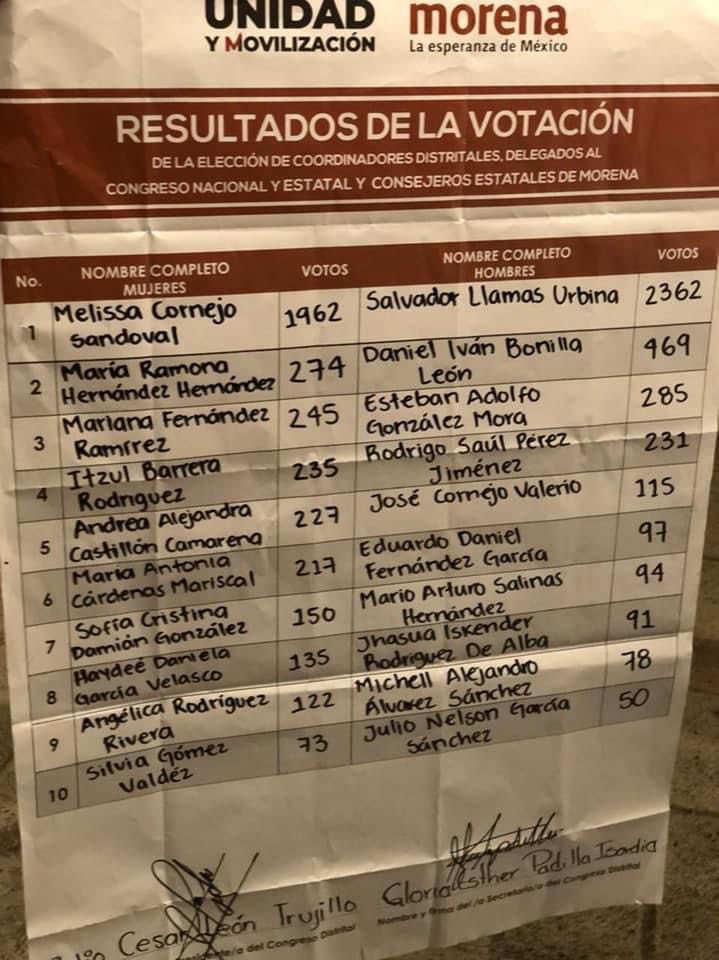 UNIDAD
Y MOVILIZACIÓN
morena
La esperanza de México
RESULTADOS DE LA VOTACIÓN
DE LA ELECCIÓN DE COORDINADORES DISTRITALES, DELEGADOS AL
CONGRESO NACIONAL Y ESTATAL Y CONSEJEROS ESTATALES DE MORENA
No. NOMBRE COMPLETO MUJERES VOTOS NOMBRE COMPLETO HOMBRES VOTOS
1 Melissa Cornejo Sandoval 1962 Salvador Llamas Urbina 2362
2 María Ramona Hernández Hernández 274 Daniel Iván Bonilla León 469
3 Mariana Fernández Ramírez 245 Esteban Adolfo González Mora 285
4 Itzul Barrera Rodríguez 235 Rodrigo Saúl Pérez Jiménez 231
5 Andrea Alejandra Castillón Camarena 227 José Cornejo Valerio 115
6 María Antonia Cárdenas Mariscal 217 Eduardo Daniel Fernández García 97
7 Sofía Cristina Damián González 150 Mario Arturo Salinas Hernández 94
8 Haydeé Daniela García Velasco 135 Jhasua Iskender Rodríguez De Alba 91
9 Angélica Rodríguez Rivera 122 Michell Alejandro Álvarez Sánchez 78
10 Silvia Gómez Valdéz 73 Julio Nelson García Sánchez 50
Cesar León Trujillo
del Congreso Distrital
Gloria Esther Padilla Isadia
Nombre y firma del /a Secretario/a del Congreso Distrital